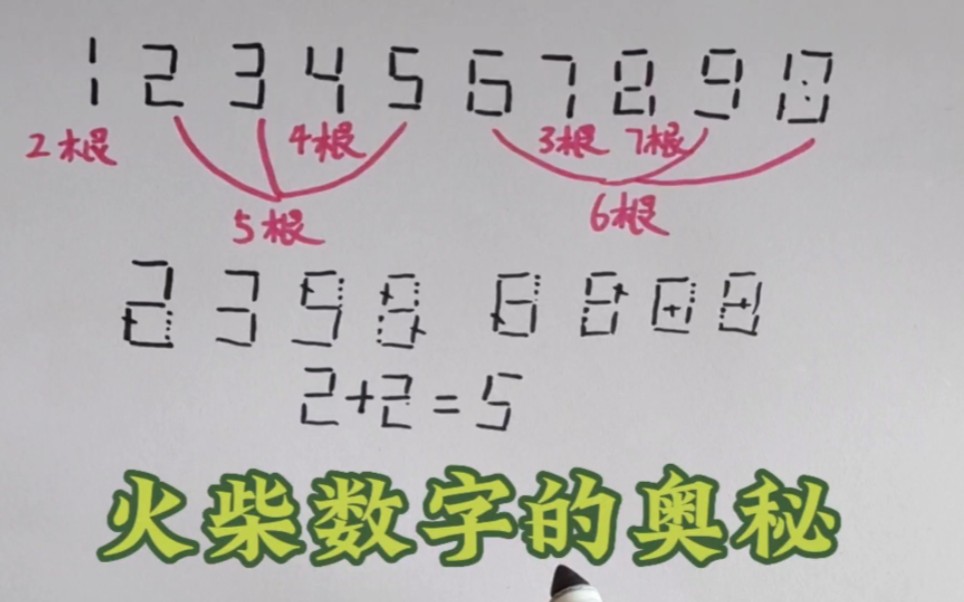 1 2 3 4 5 6 7 8 9 0
2根 4根 3根 7根
5根 6根
2 3
2+2=5
火柴数字的奥秘